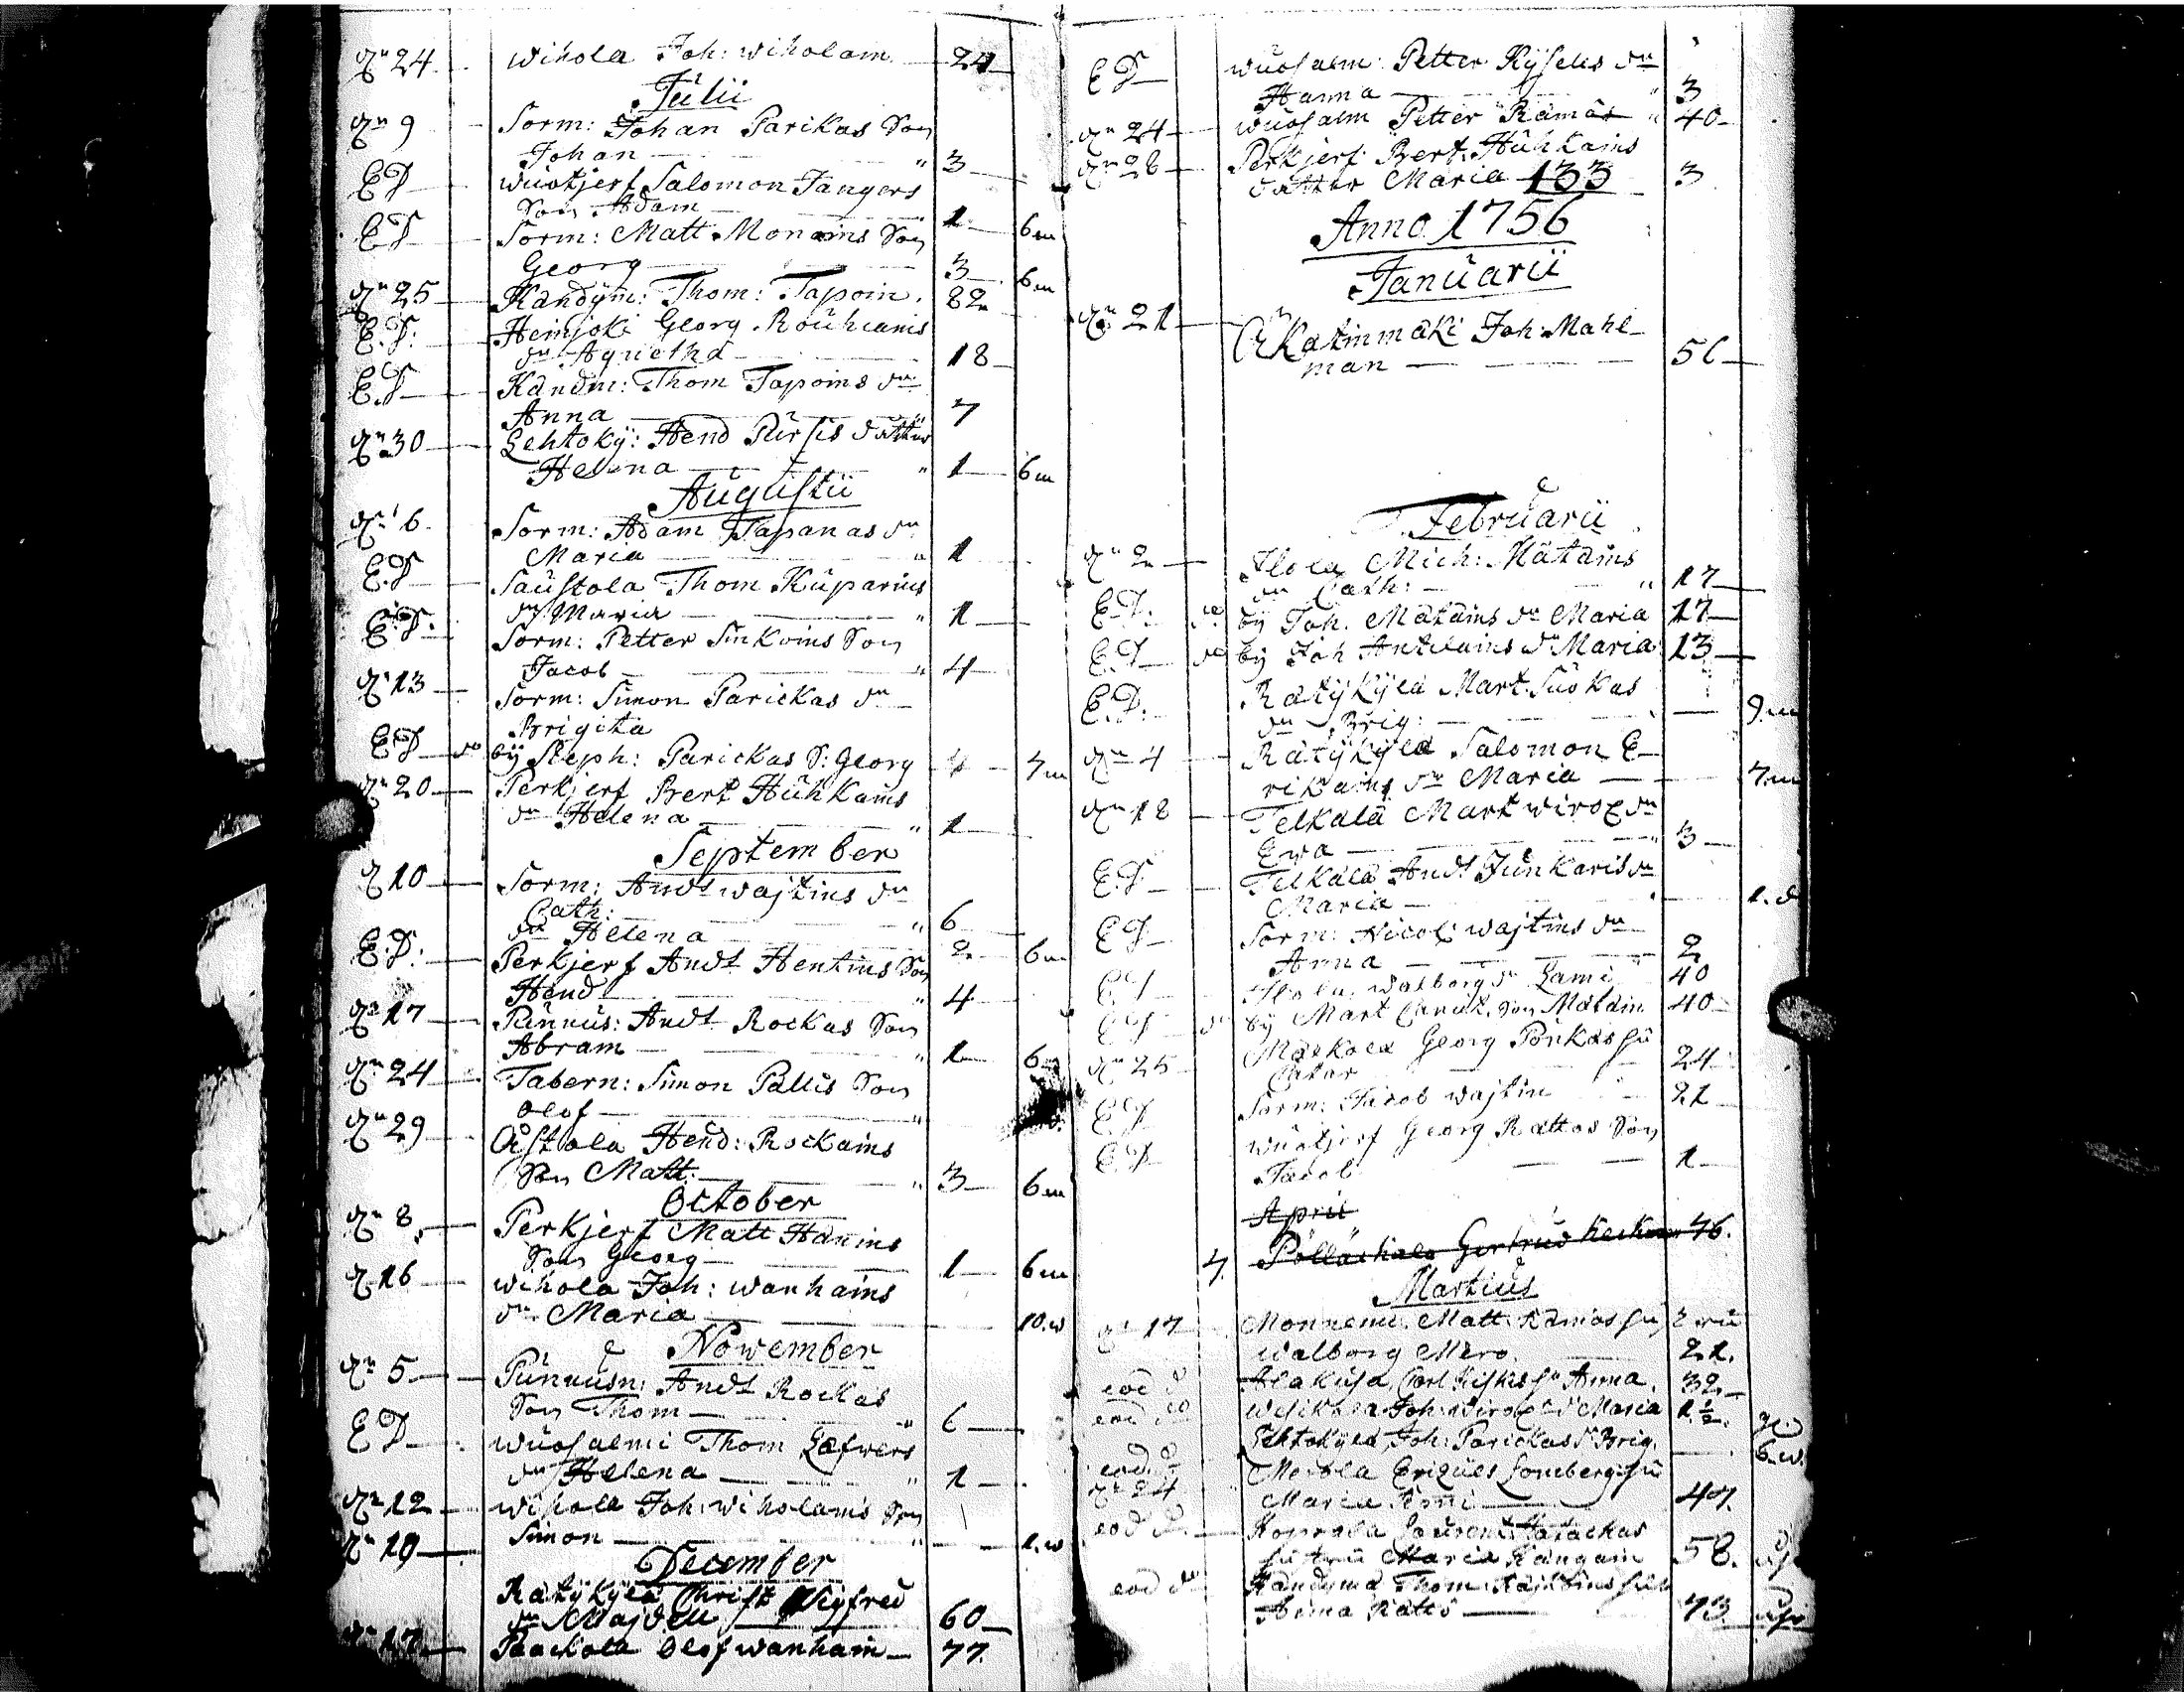 dn 24 Wihola Joh: Wiholain 24
Julii
dn 9 Sorm: Johan Parikas Son
Johan " 3
E D Wuotjerf Salomon Tangers
Son Adam 1 6 m
E D Sorm: Matt. Monoins Son
Georg 3 6 m
dn 25 Kandÿm: Thom: Tapoin. 82
E. D: Heinjoki Georg Rouhiains
dr Agnetha 18
E. D Kandm: Thom Tapoins dr
Anna 7
dn 30 Lehtokÿ: Hend Pursis dotter
Helena " 1 6 m
Augustii
dn 6 Sorm: Adam Tapanas dr
Maria " 1
E. D Saustola Thom Kuparins
dr Maria " 1
E. D. Sorm: Petter Sinkoins Son
Jacob " 4
dn 13 Sorm: Simon Parickas dr
Brigita
E D do bÿ Steph: Parickas S: Georg 4 7 m
dn 20 Perkjerf Bert Huhkains
dr Helena " 1
September
d 10 Sorm: Andt Wajtins dr
Cath: " 6
dr Helena 2 6 m
E. D: Perkjerf Andt Hentins Son
Hend " 4
dn 17 Punnus: Andt Rockas Son
Abram " 1 6 m
dn 24 Tabern: Simon Pallis Son
Olof "
dn 29 Oistola Hend: Rockains
Son Matt: " 3 6 m
October
dn 8 Perkjerf Matt Hanins
Son Georg 1 6 m
d 16 Wihola Joh: Wanhains
dr Maria 10. w
Nowember
dn 5 Punnusn: Andt Rockas
Son Thom " 6
E D Wuosalmi Thom Lefwers
dr Helena " 1
dn 12 Wihola Joh: Wiholains Son
dn 19 Simon " 1. w
December
Rätÿkÿlä Christ Sigfred
60
17 Paackola Olof Wanhain 77.
E D Wuosalm: Petter Kÿselis dr
Hanna " 3
dn 24 Wuosalm Petter Rämäs " 40
dn 28 Perkjerf Bert. Huhkains
datter Maria 133 3
Anno 1756
Januarii
dn 21 Katinmäki Joh: Mahl-
man 56
Februarii
dn 2 Ilola Mich: Mätäins
dr Cath: " 17
E. D. do bÿ Joh. Mätäins dr Maria 17
E. D do bÿ Joh Antilains dr Maria 13
E. D. Rätÿkÿlä Mart. Suokas
dr Brig: 9. m
dn 4 Rätÿkÿlä Salomon E-
rikains dr Maria 7. m
dn 18 Telkälä Mart Wirox dr
Ewa " 3
E. D Telkälä Andt Junkaris dr
Maria 1. d
E D Sorm: Nicol: Wajtins dr
Anna 2
E D Ilola Walborg dr Lami 40
E D do bÿ Mart Son Mätäin 40
dn 25 Mäckola Georg Pönkäs hu
Catar 24
E D Sorm: Jacob Wajtin 21
E D Wuotjerf Georg Rattos Son
Jacob 1
April
7. Gertrud 76.
Martius
d 17 Matt
Walborg Mero 21.
eod d Anna 32
eod do Joh: Wirox dr Maria 1 1/2
eod d Lehtokÿlä Joh: Parickas dr Brig: 6. w.
dn 24 Lomberg hu
Maria 47.
eod d
hustru Maria Kangain 58.
eod do Kandÿma Thom
Anna Ratto 73